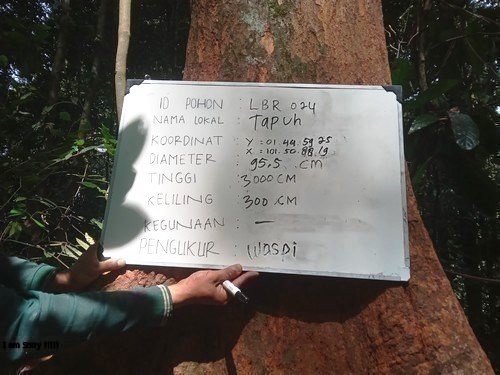 ID POHON : LBR 024
NAMA LOKAL : Tapuh
KOORDINAT : Y = 01.44.59.25
X = 101.50.88.19
DIAMETER : 95,5 CM
TINGGI : 3000 CM
KELILING : 300 CM
KEGUNAAN : —
PENGUKUR :
I am Sexy !!!!!